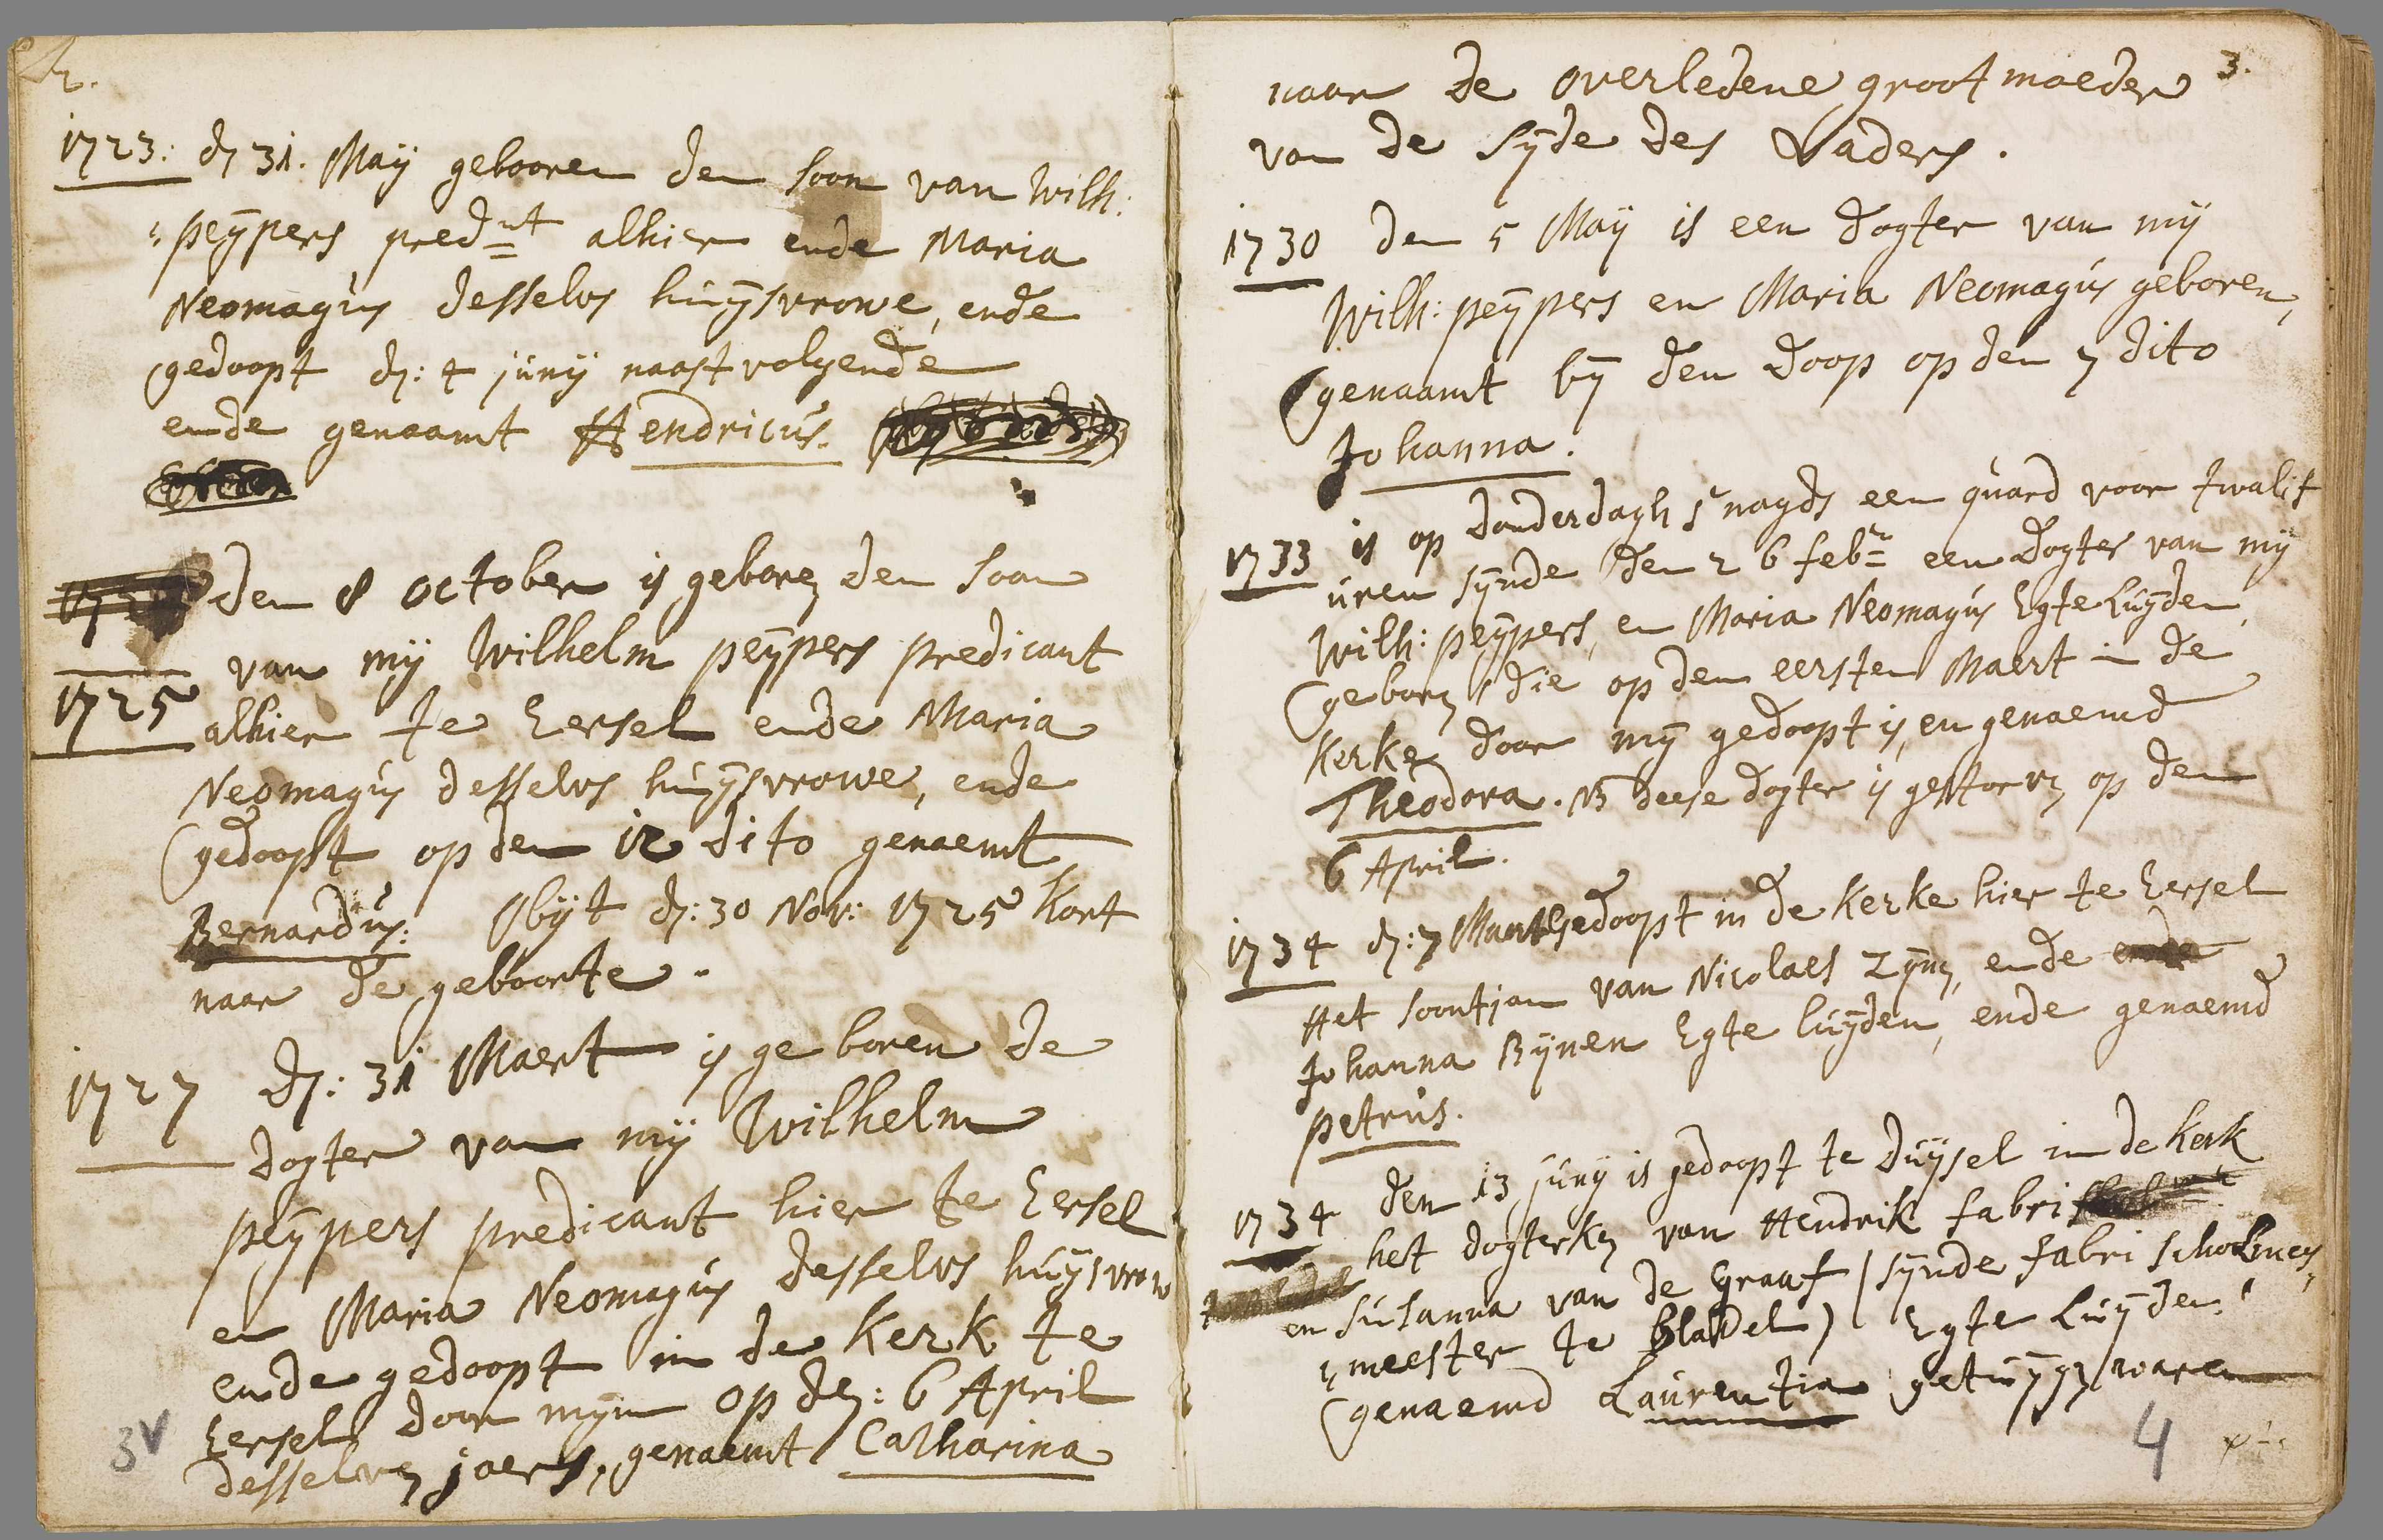 2.
1723: dn 31. Maij gebooren den soon van Wilh:
peijpers prednt alhier ende Maria
Neomagus desselvs huijsvrowe, ende
gedoopt dn: 4 junij naastvolgende
ende genaamt Hendricus.
den 8 october is geboren den soon
van mij Wilhelm peijpers predicant
1725 alhier te Eersel ende Maria
Neomagus desselvs huijsvrowe, ende
gedoopt op den 12 dito genaemt
Bernardus: Obijt dn: 30 Nov: 1725 kort
naar de geboorte.
1727 dn: 31 Maert is geboren de
dogter van mij Wilhelm
peijpers predicant hier te Eersel
en Maria Neomagus desselvs huijsvrow
ende gedoopt in de Kerk te
Eersel door mijn op den: 6 April
desselven jaers, genaemt Catharina
3V
3.
naar de overledene grootmoeder
van de sijde des Vaders.
1730 den 5 Maij is een dogter van mij
Wilh: peijpers en Maria Neomagus geboren,
genaamt bij den doop op den 7 dito
Johanna.
1733 is op donderdagh s'nagds een quard voor twalif
uren sijnde den 26 febr een dogter van mij
Wilh: peijpers, en Maria Neomagus Egte Luijden
geboren, die op den eersten Maert in de
Kerke door mij gedoopt is, en genaemd
Theodora. NB deese dogter is gestorven op den
6 April.
1734 dn: 7 Maert Gedoopt in de Kerke hier te Eersel
Het soontjen van Nicolaes Zijnen, ende
Johanna Bijnen Egte luijden, ende genaemd
petrus.
1734 den 13 junij is gedoopt te Duijsel in de Kerk
het dogterken van Hendrik fabri
en Susanna van de Graaf (sijnde fabri schoolmees
meester te Bladel) Egte Luijden.
genaemd Laurentia getuijgen waren
4